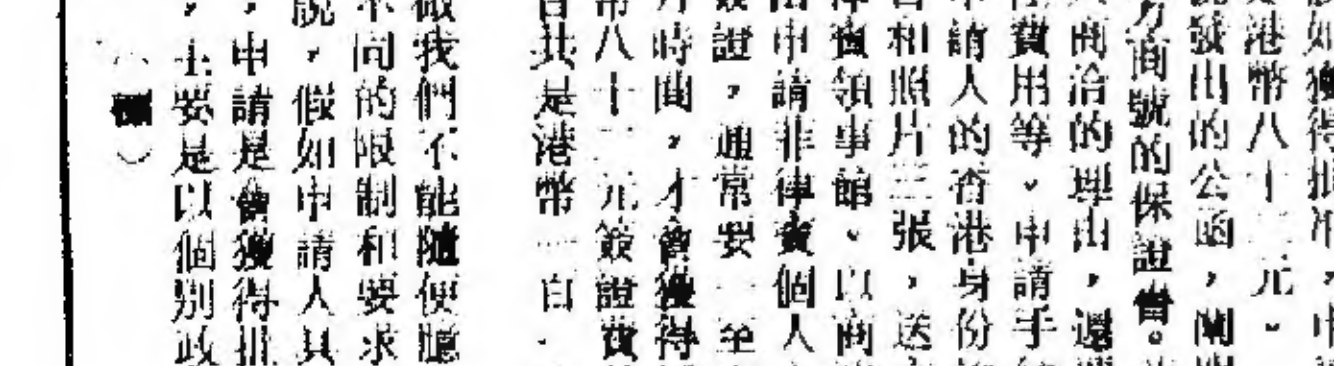 如獲得批准，
港幣八十二元。
發出的公函，闡明
方商號的保證書。
商洽的理由，還
費用等。申請手
請人的香港身份
和照片三張，送
賓領事館。以商
申請非律賓個人
簽證，通常要一至
時間，才會獲得
八十二元簽證費
共是港幣一百
我們不能隨便聽
同的限制和要求
說，假如申請人具
，申請是會獲得批
，主要是以個別政